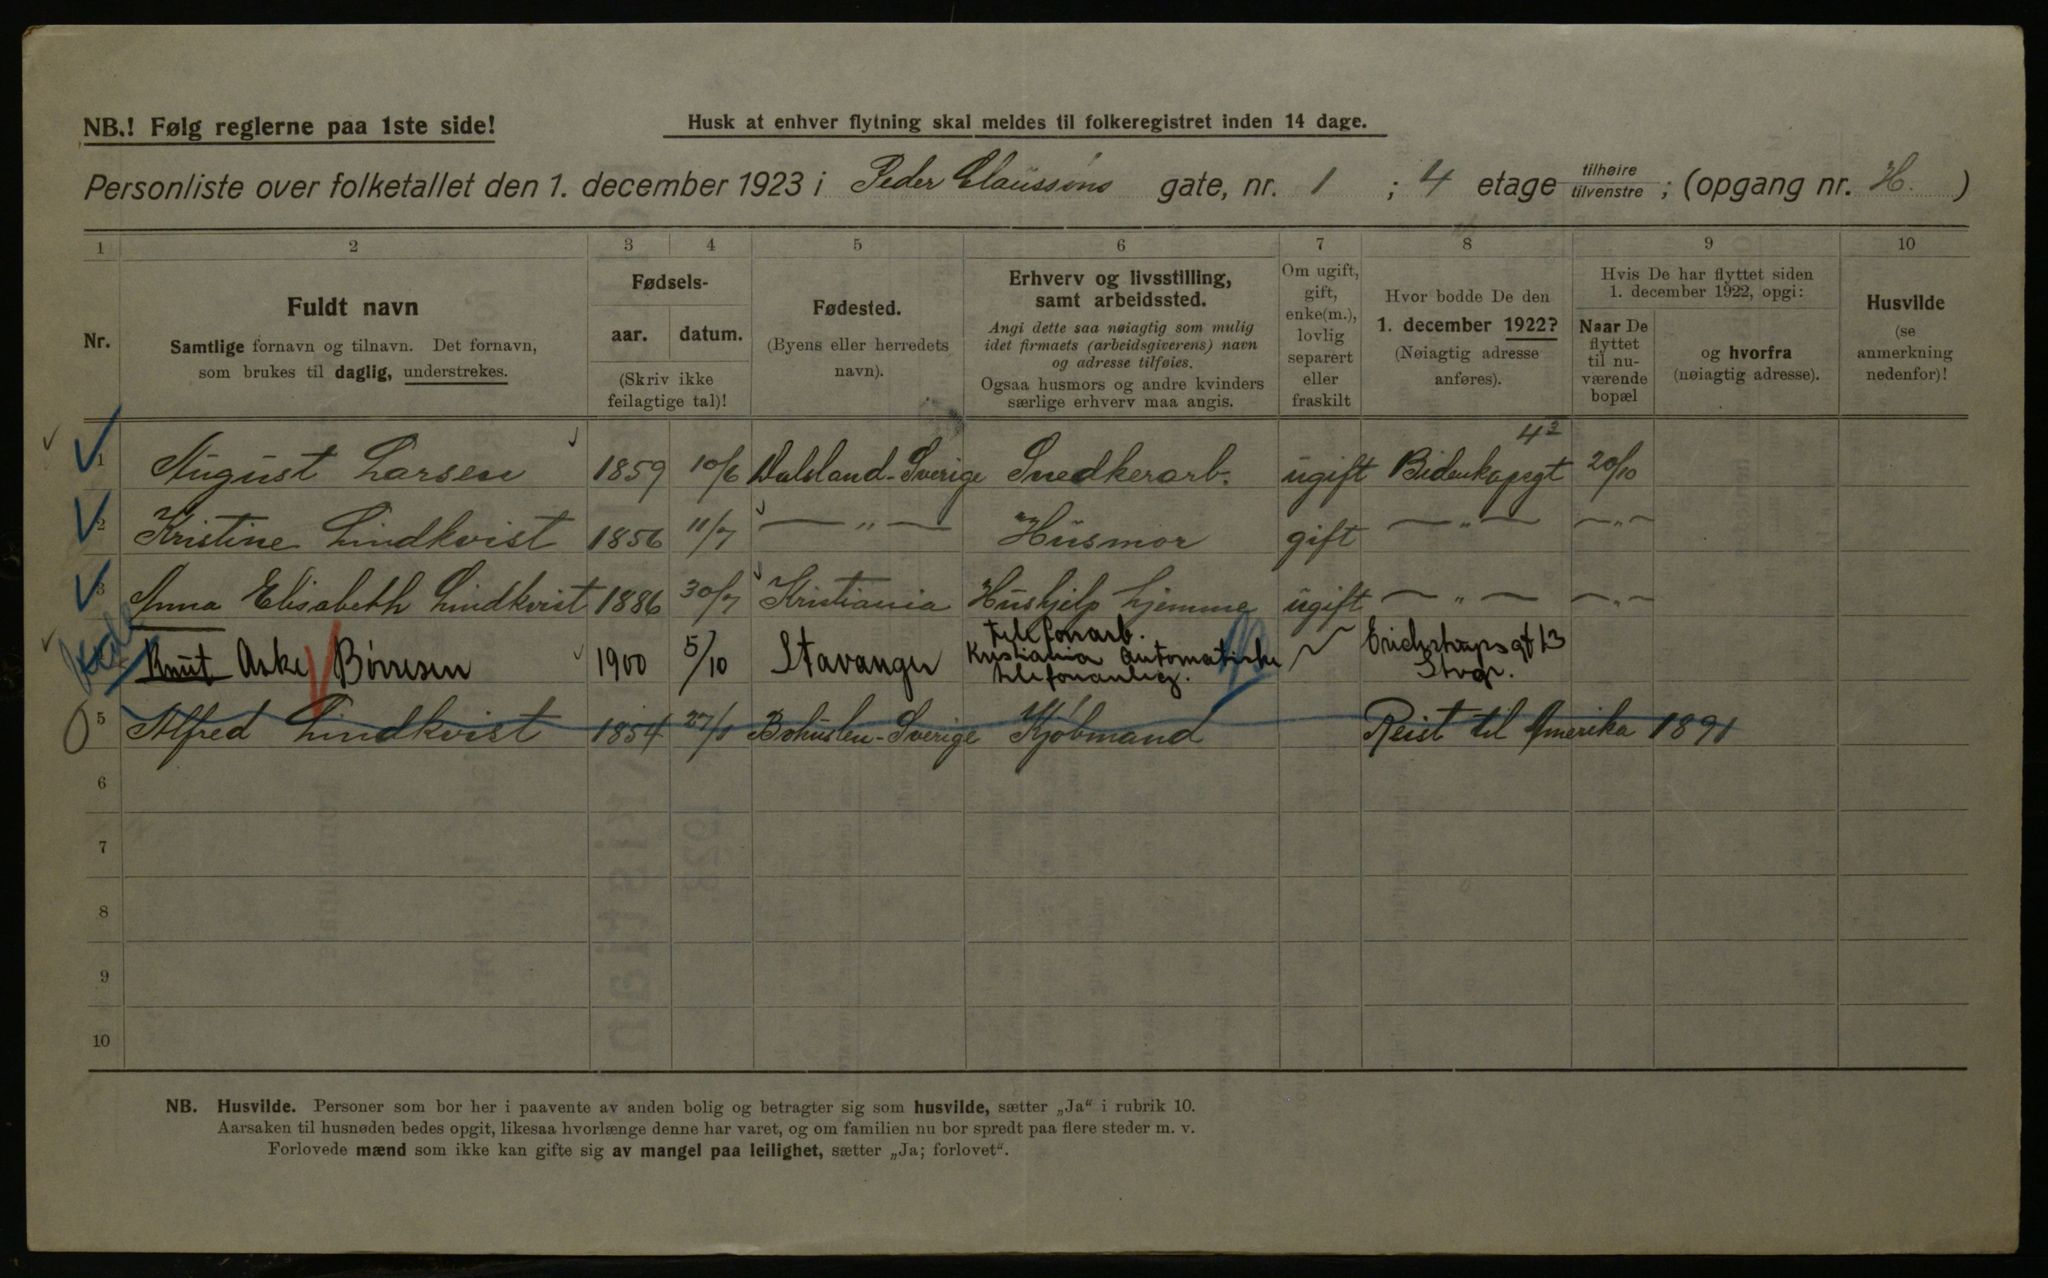 NB.! Følg reglerne paa 1ste side!
Husk at enhver flytning skal meldes til folkeregistret inden 14 dage.
Personliste over folketallet den 1. december 1923 i Peder Claussøns gate, nr. 1 ; 4 etage tilhøire tilvenstre ; (opgang nr. H. )
1 2 3 4 5 6 7 8 9 10
Nr.
Fuldt navn
Samtlige fornavn og tilnavn. Det fornavn,
som brukes til daglig, understrekes.
Fødsels-
aar. datum.
(Skriv ikke
feilagtige tal)!
Fødested.
(Byens eller herredets
navn).
Erhverv og livsstilling,
samt arbeidssted.
Angi dette saa nøiagtig som mulig
idet firmaets (arbeidsgiverens) navn
og adresse tilføies.
Ogsaa husmors og andre kvinders
særlige erhverv maa angis.
Om ugift,
gift,
enke(m.),
lovlig
separert
eller
fraskilt
Hvor bodde De den
1. december 1922?
(Nøiagtig adresse
anføres).
Hvis De har flyttet siden
1. december 1922, opgi:
Naar De
flyttet
til nu-
værende
bopæl
og hvorfra
(nøiagtig adresse).
Husvilde
(se
anmerkning
nedenfor)!
1 August Larsen 1859 10/6 Dalsland-Sverige Snedkerarb. ugift Bidenkapsgt 42 20/10
2 Kristine Lindkvist 1856 11/7 — " — Husmor gift — " — — " —
3 Anna Elisabeth Lindkvist 1886 30/7 Kristiania Hushjelp hjemme ugift — " — — " —
Knut Aske Børresen 1900 5/10 Stavanger telefonarb. Kristiania Automatiske telefonanlæg. Erichstrupsgt 13 Stvgr.
5 Alfred Lindkvist 1854 27/1 Bohuslen-Sverige Kjøbmand Reist til Amerika 1891
6
7
8
9
10
NB. Husvilde. Personer som bor her i paavente av anden bolig og betragter sig som husvilde, sætter „Ja“ i rubrik 10.
Aarsaken til husnøden bedes opgit, likesaa hvorlænge denne har varet, og om familien nu bor spredt paa flere steder m. v.
Forlovede mænd som ikke kan gifte sig av mangel paa leilighet, sætter „Ja; forlovet“.